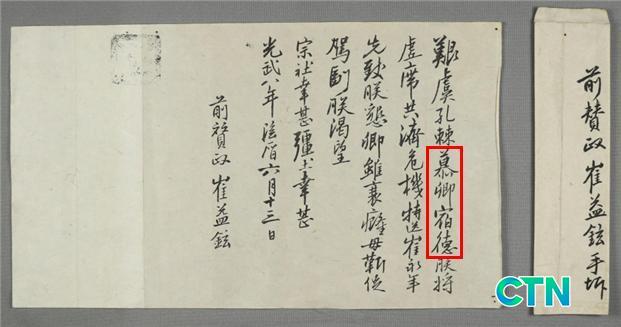 艱虞孔棘慕卿宿德朕將
虛席共濟危機特送崔永年
先致朕懇卿雖衰癃毋靳促
駕副朕渴望
宗社幸甚疆土幸甚
光武八年陰曆六月十三日
前贊政 崔益鉉
前贊政崔益鉉手坼
CTN